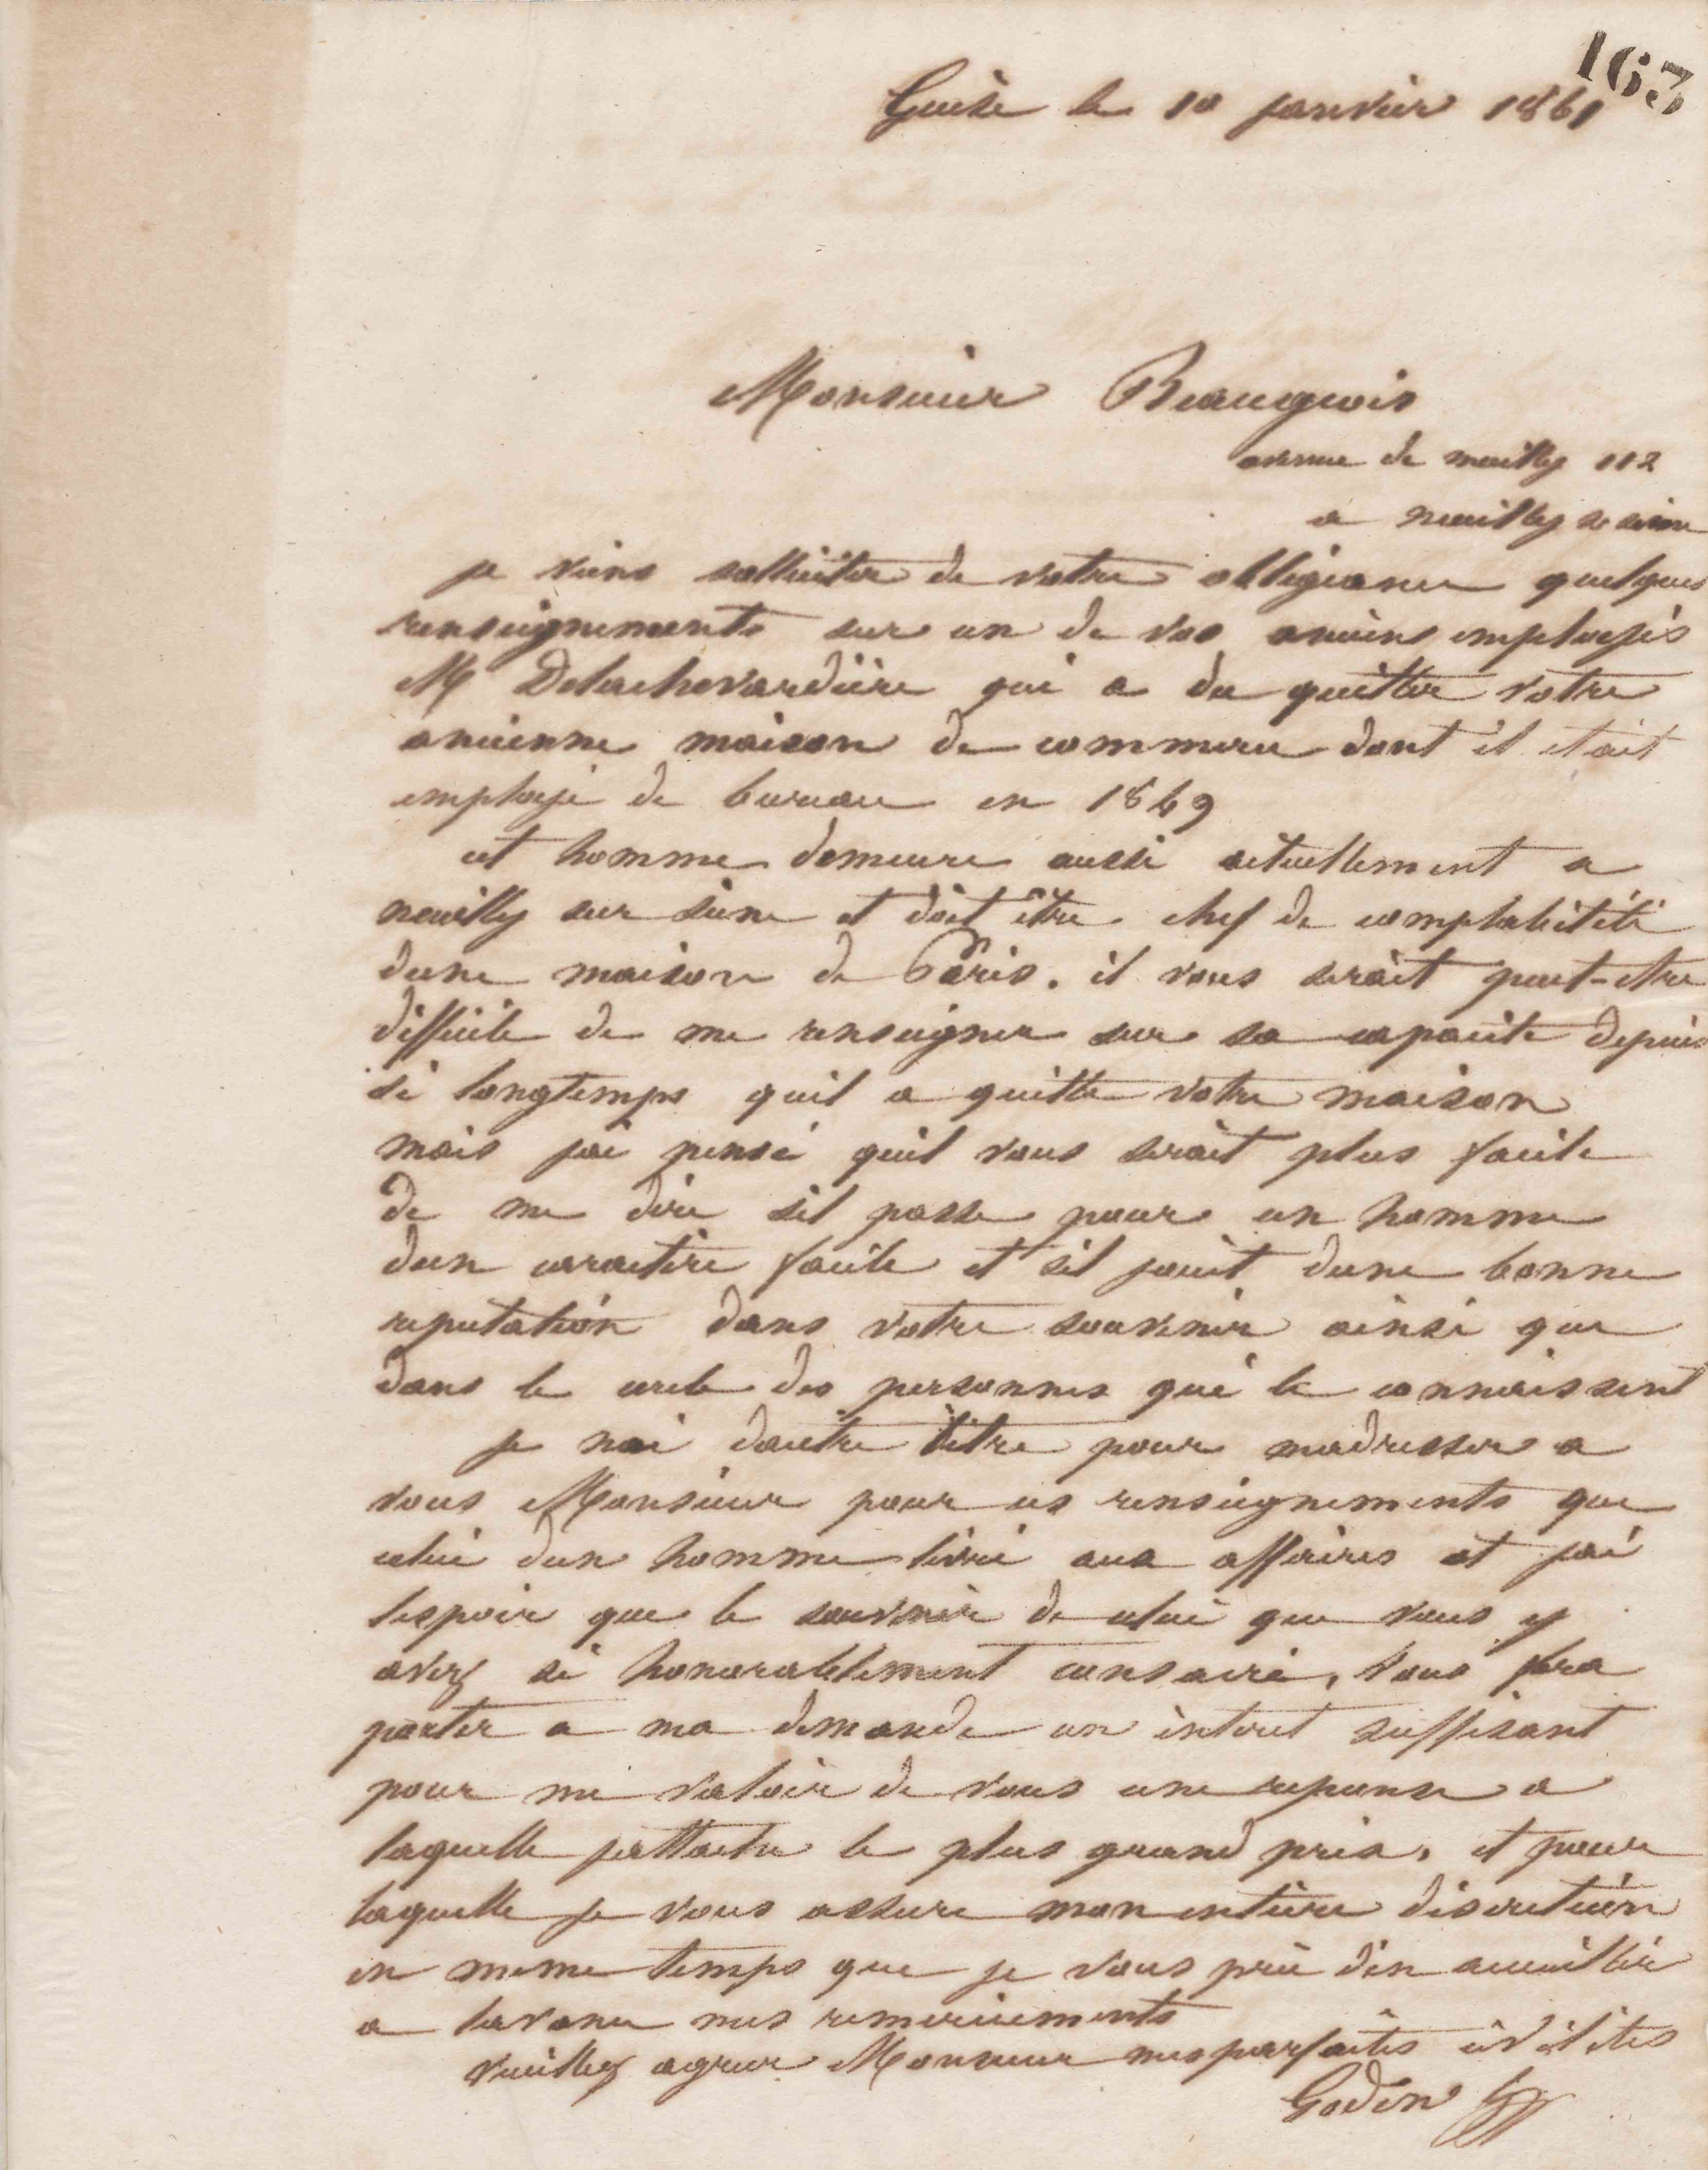 163
Guise le 10 janvier 1861
Monsieur Beaugeois
avenue de neuilly 112
a neuilly s seine
je viens solliciter de votre obligeance quelques
renseignements sur un de vos anciens employés
M Delachevardière qui a du quitter votre
ancienne maison de commerce dont il etait
employé de bureau en 1849
cet homme demeure aussi actuellement a
neuilly sur seine et doit être chef de comptabilité
dune maison de Paris. il vous serait peut-etre
difficile de me renseigner sur sa capacite depuis
si longtemps quil a quitte votre maison
mais jai pensé quil vous serait plus facile
de me dire sil passe pour un homme
dun caractère facile et sil jouit dune bonne
reputation dans votre souvenir ainsi que
dans le cercle des personnes qui le connaissent
je nai dautre titre pour madresser a
vous Monsieur pour ces renseignements que
celui dun homme livré aux affaires et jai
lespoir que le souvenir de celui que vous y
avez si honorablement consacré, vous fera
porter a ma demande un interet suffisant
pour me valoir de vous une reponse a
laquelle jattache le plus grand prix, et pour
laquelle je vous assure mon entière discretion
en meme temps que je vous prie den accueillir
a lavance mes remerciements
veuillez agreer Monsieur mes parfaites civilites
Godin